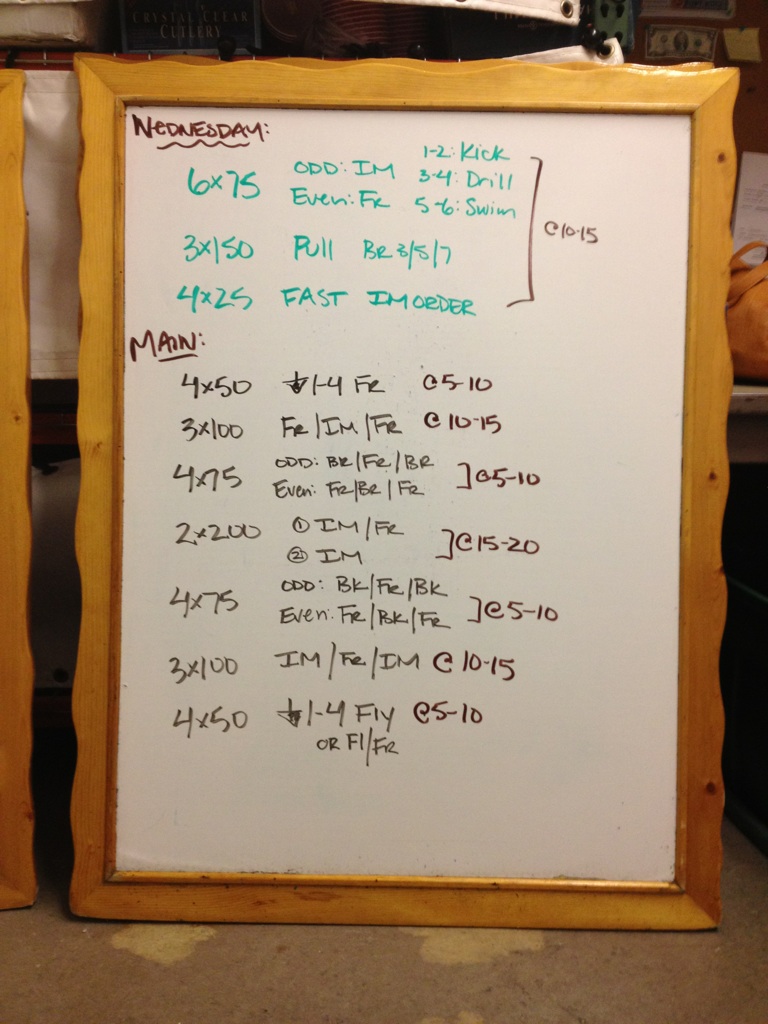 CRYSTAL CLEAR
CUTLERY
WEDNESDAY:
6x75 ODD: IM 1-2: Kick
Even: FR 3-4: Drill
5-6: Swim
@10-15
3x150 Pull BR 3/5/7
4x25 FAST IM ORDER
MAIN:
4x50 ↓1-4 FR @5-10
3x100 FR/IM/FR @10-15
4x75 ODD: BR/FR/BR
Even: FR/BR/FR ]@5-10
2x200 ① IM/FR
② IM ]@15-20
4x75 ODD: BK/FR/BK
Even: FR/BK/FR ]@5-10
3x100 IM/FR/IM @10-15
4x50 ↓1-4 Fly @5-10
OR Fl/FR